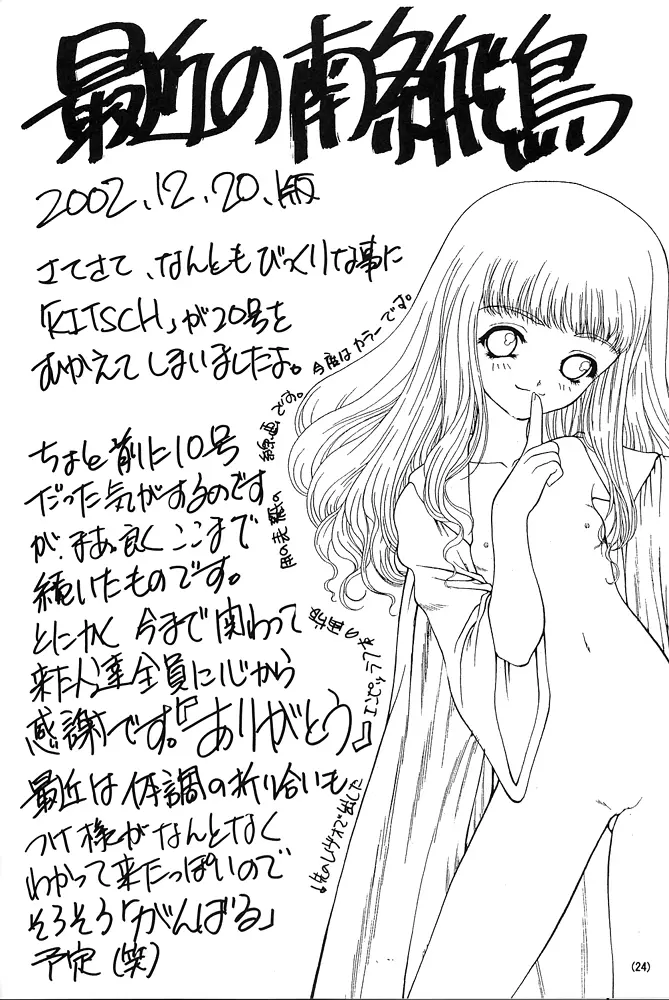 最近の南条飛鳥
2002.12.20.版
さてさて、なんともびっくりな事に
「KITSCH」が20号を
むかえてしまいましたよ。
ちょと前に10号
だった気がするのです
が、まあ良くここまで
続いたものです。
とにかく今まで関わって
来た人達全員に心から
感謝です。『ありがとう』
最近は体調の折り合いも
つけ様がなんとなく
わかって来たっぽいので
そろそろ「がんばる」
予定(笑)
今度はカラーです。
線画です。
エンピツラフを
(24)